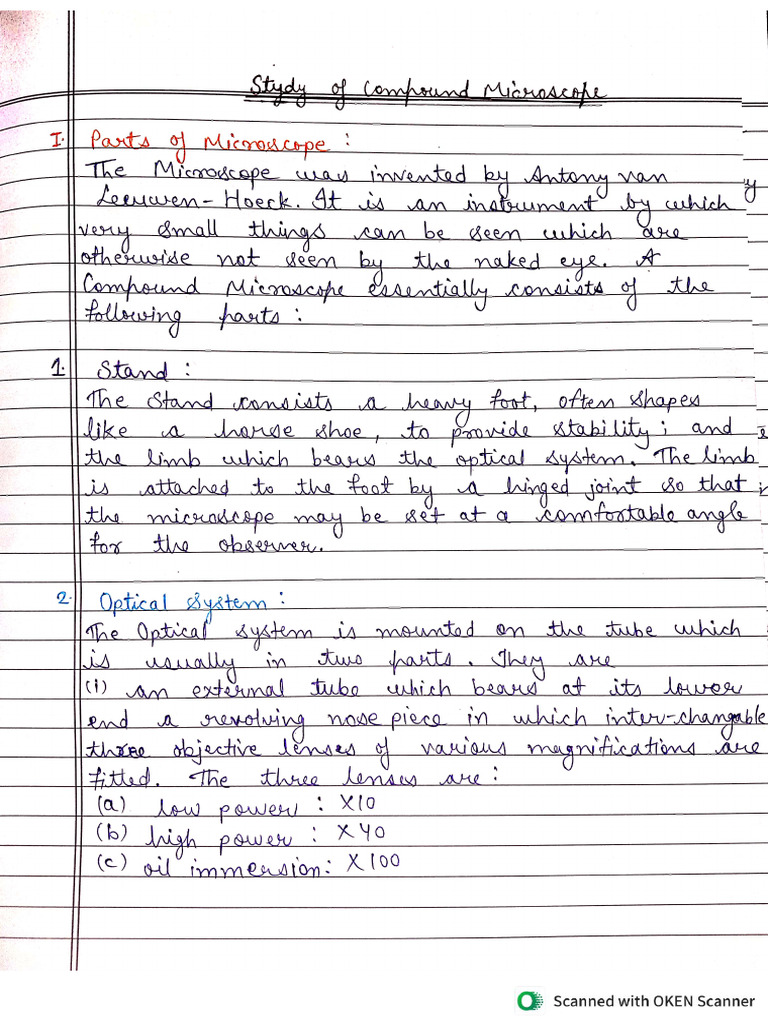 Stydy of Compound Microscope
I. Parts of Microscope :
The Microscope was invented by Antony van
Leeuwen-Hoeck. It is an instrument by which
very small things can be seen which are
otherwise not seen by the naked eye. A
Compound Microscope essentially consists of the
following parts :
1. Stand :
The Stand consists a heavy foot, often shapes
like a horse shoe, to provide stability ; and
the limb which bears the optical system. The limb
is attached to the foot by a hinged joint so that
the microscope may be set at a comfortable angle
for the observer.
2. Optical System :
The Optical system is mounted on the tube which
is usually in two parts. They are
(i) an external tube which bears at its lower
end a revolving nose piece in which inter-changable
three objective lenses of various magnifications are
fitted. The three lenses are :
(a) low power : X10
(b) high power : X40
(c) oil immersion: X100
Scanned with OKEN Scanner